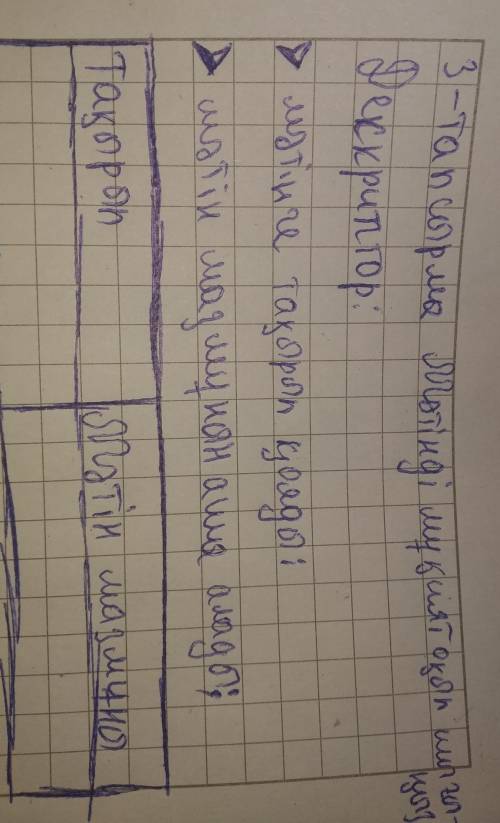 3-тапсырма Мәтінді мұқият оқып шығы-
ңыз
Дескриптор:
мәтінге тақырып қояды;
мәтін мазмұнын аша алады;
Тақырып
Мәтін мазмұны